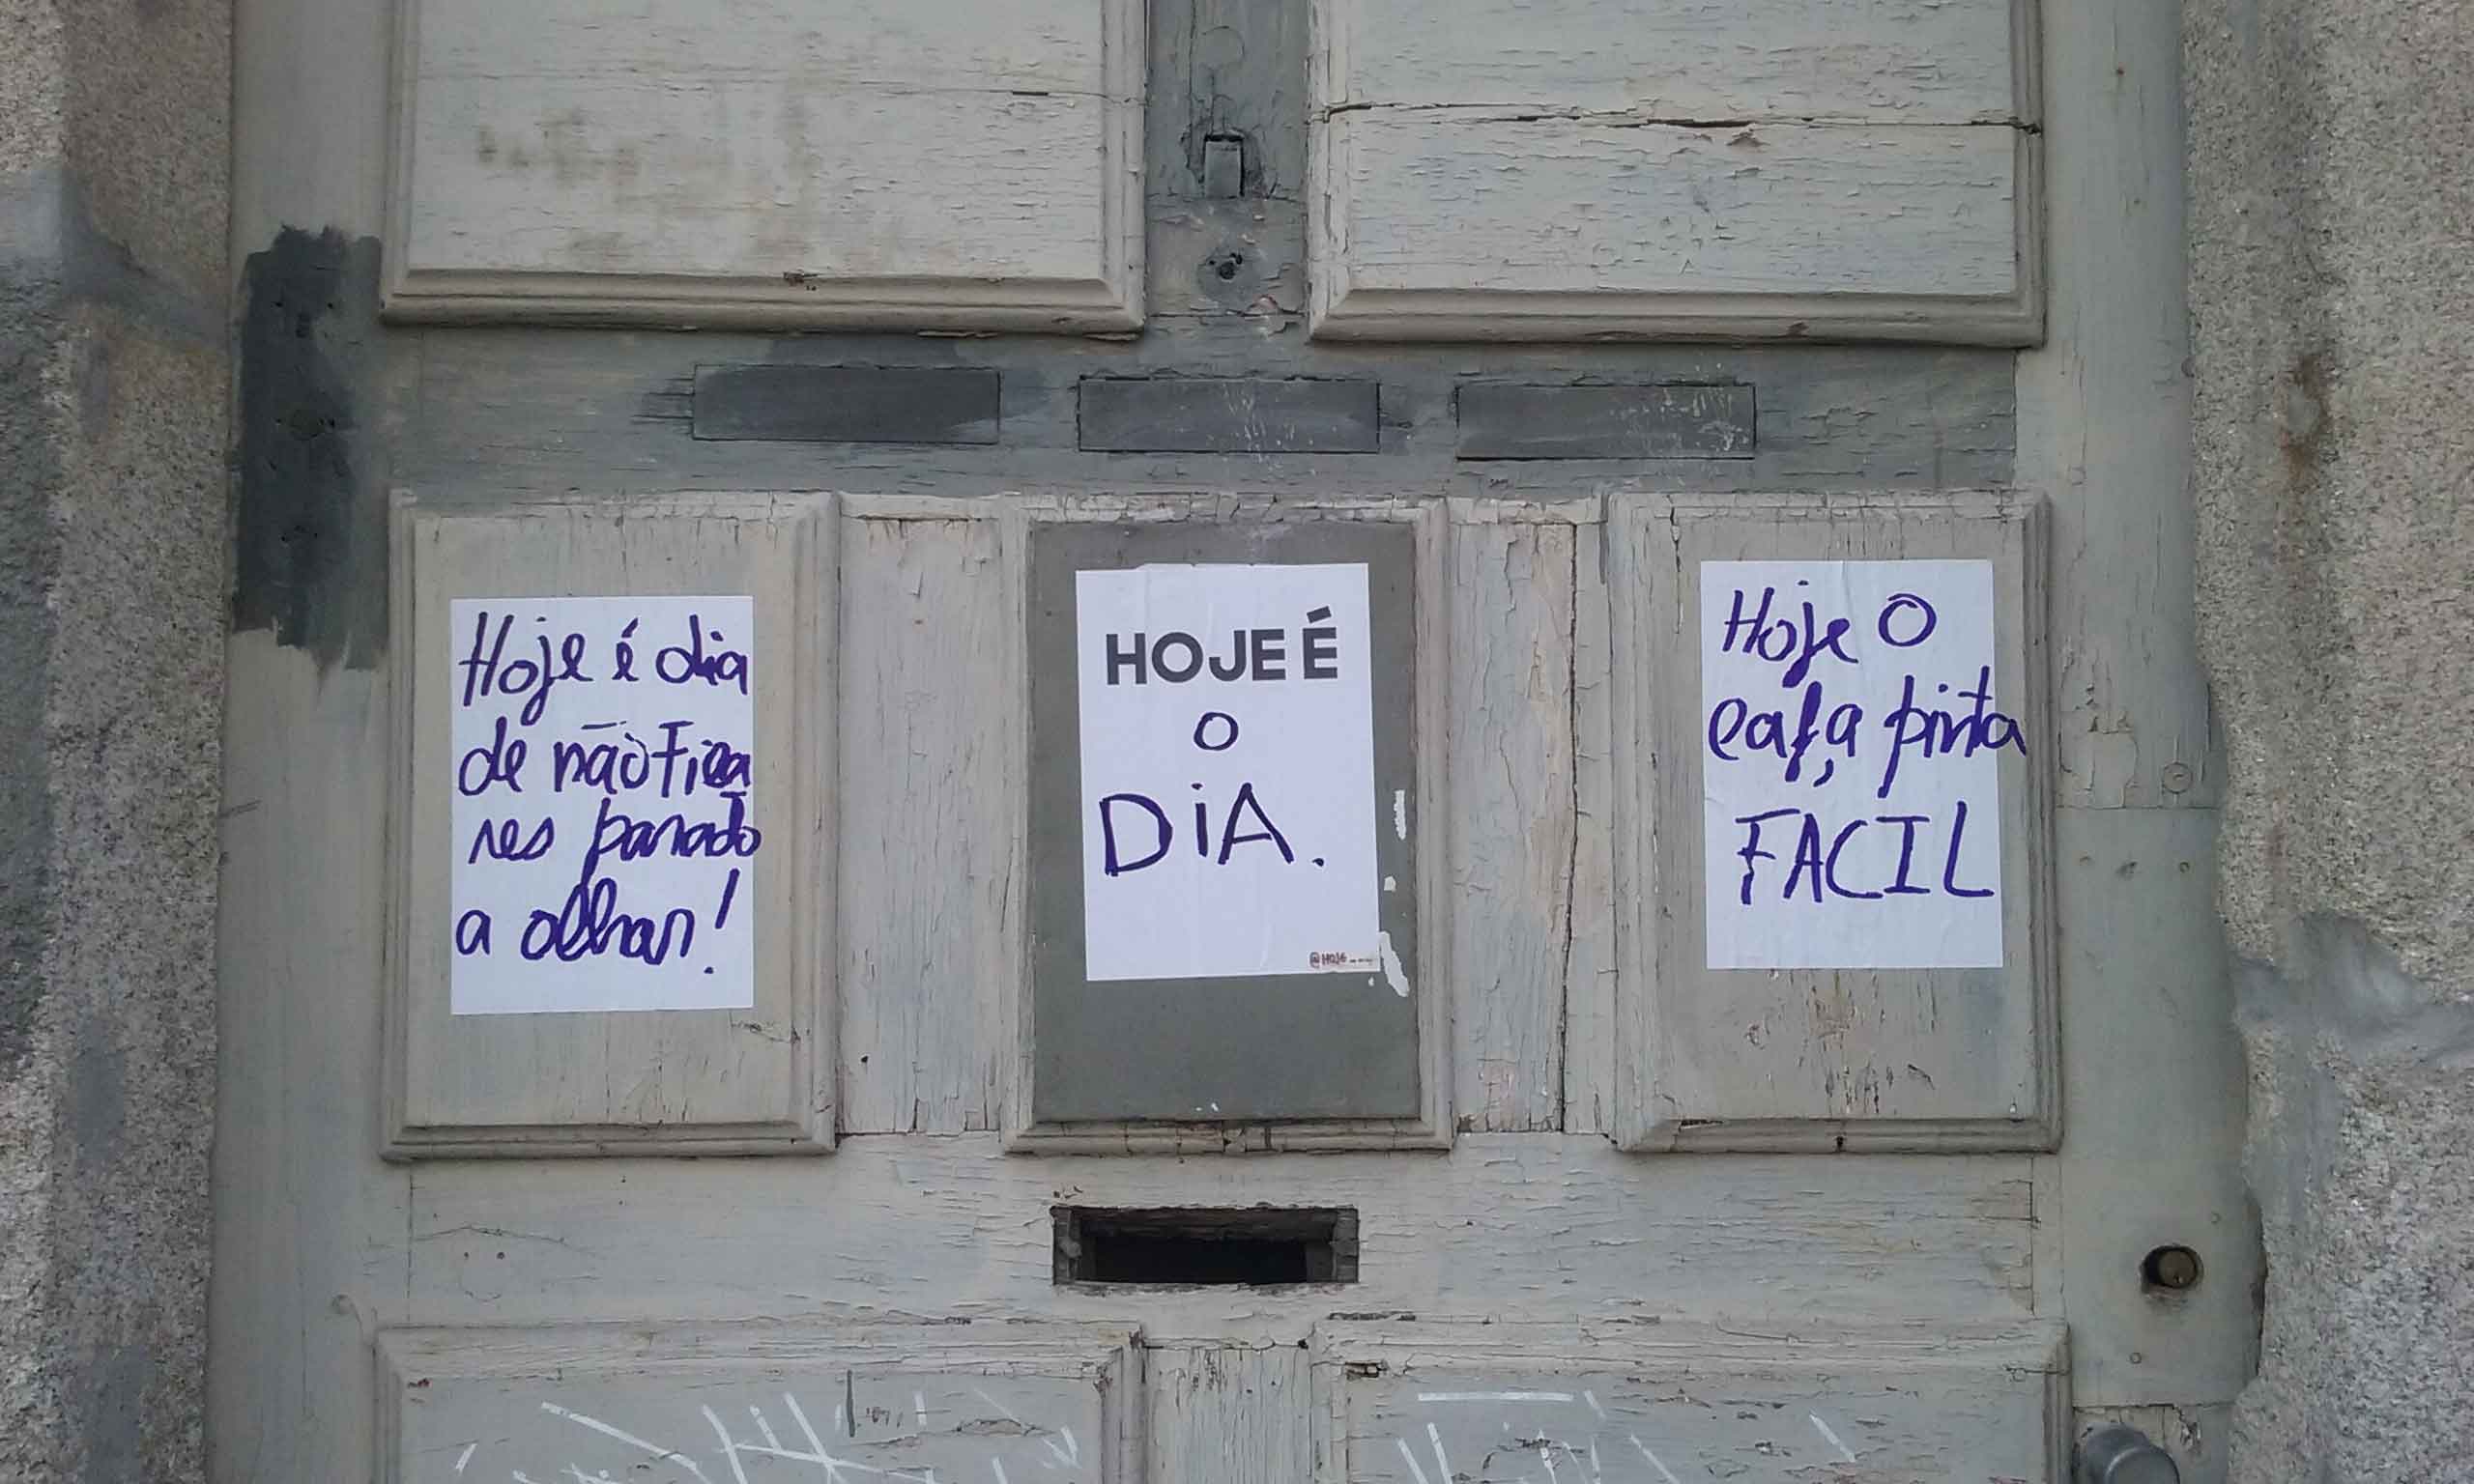 Hoje é dia
de não fica
res parado
a olhar!
HOJE É
O
DiA.
@HOJE
Hoje O
pinta
FACIL